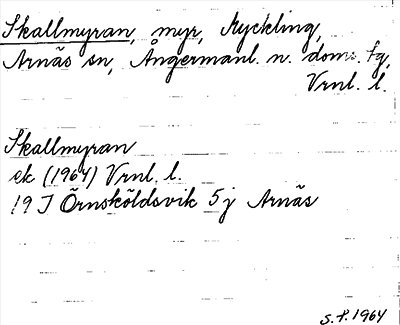 Skallmyran, myr, Myckling,
Arnäs sn, Ångermanl. n. doms. fg,
Vrnl. l.
Skallmyran
ek (1964) Vrnl. l.
19 J Örnsköldsvik 5 j Arnäs
S. F. 1964